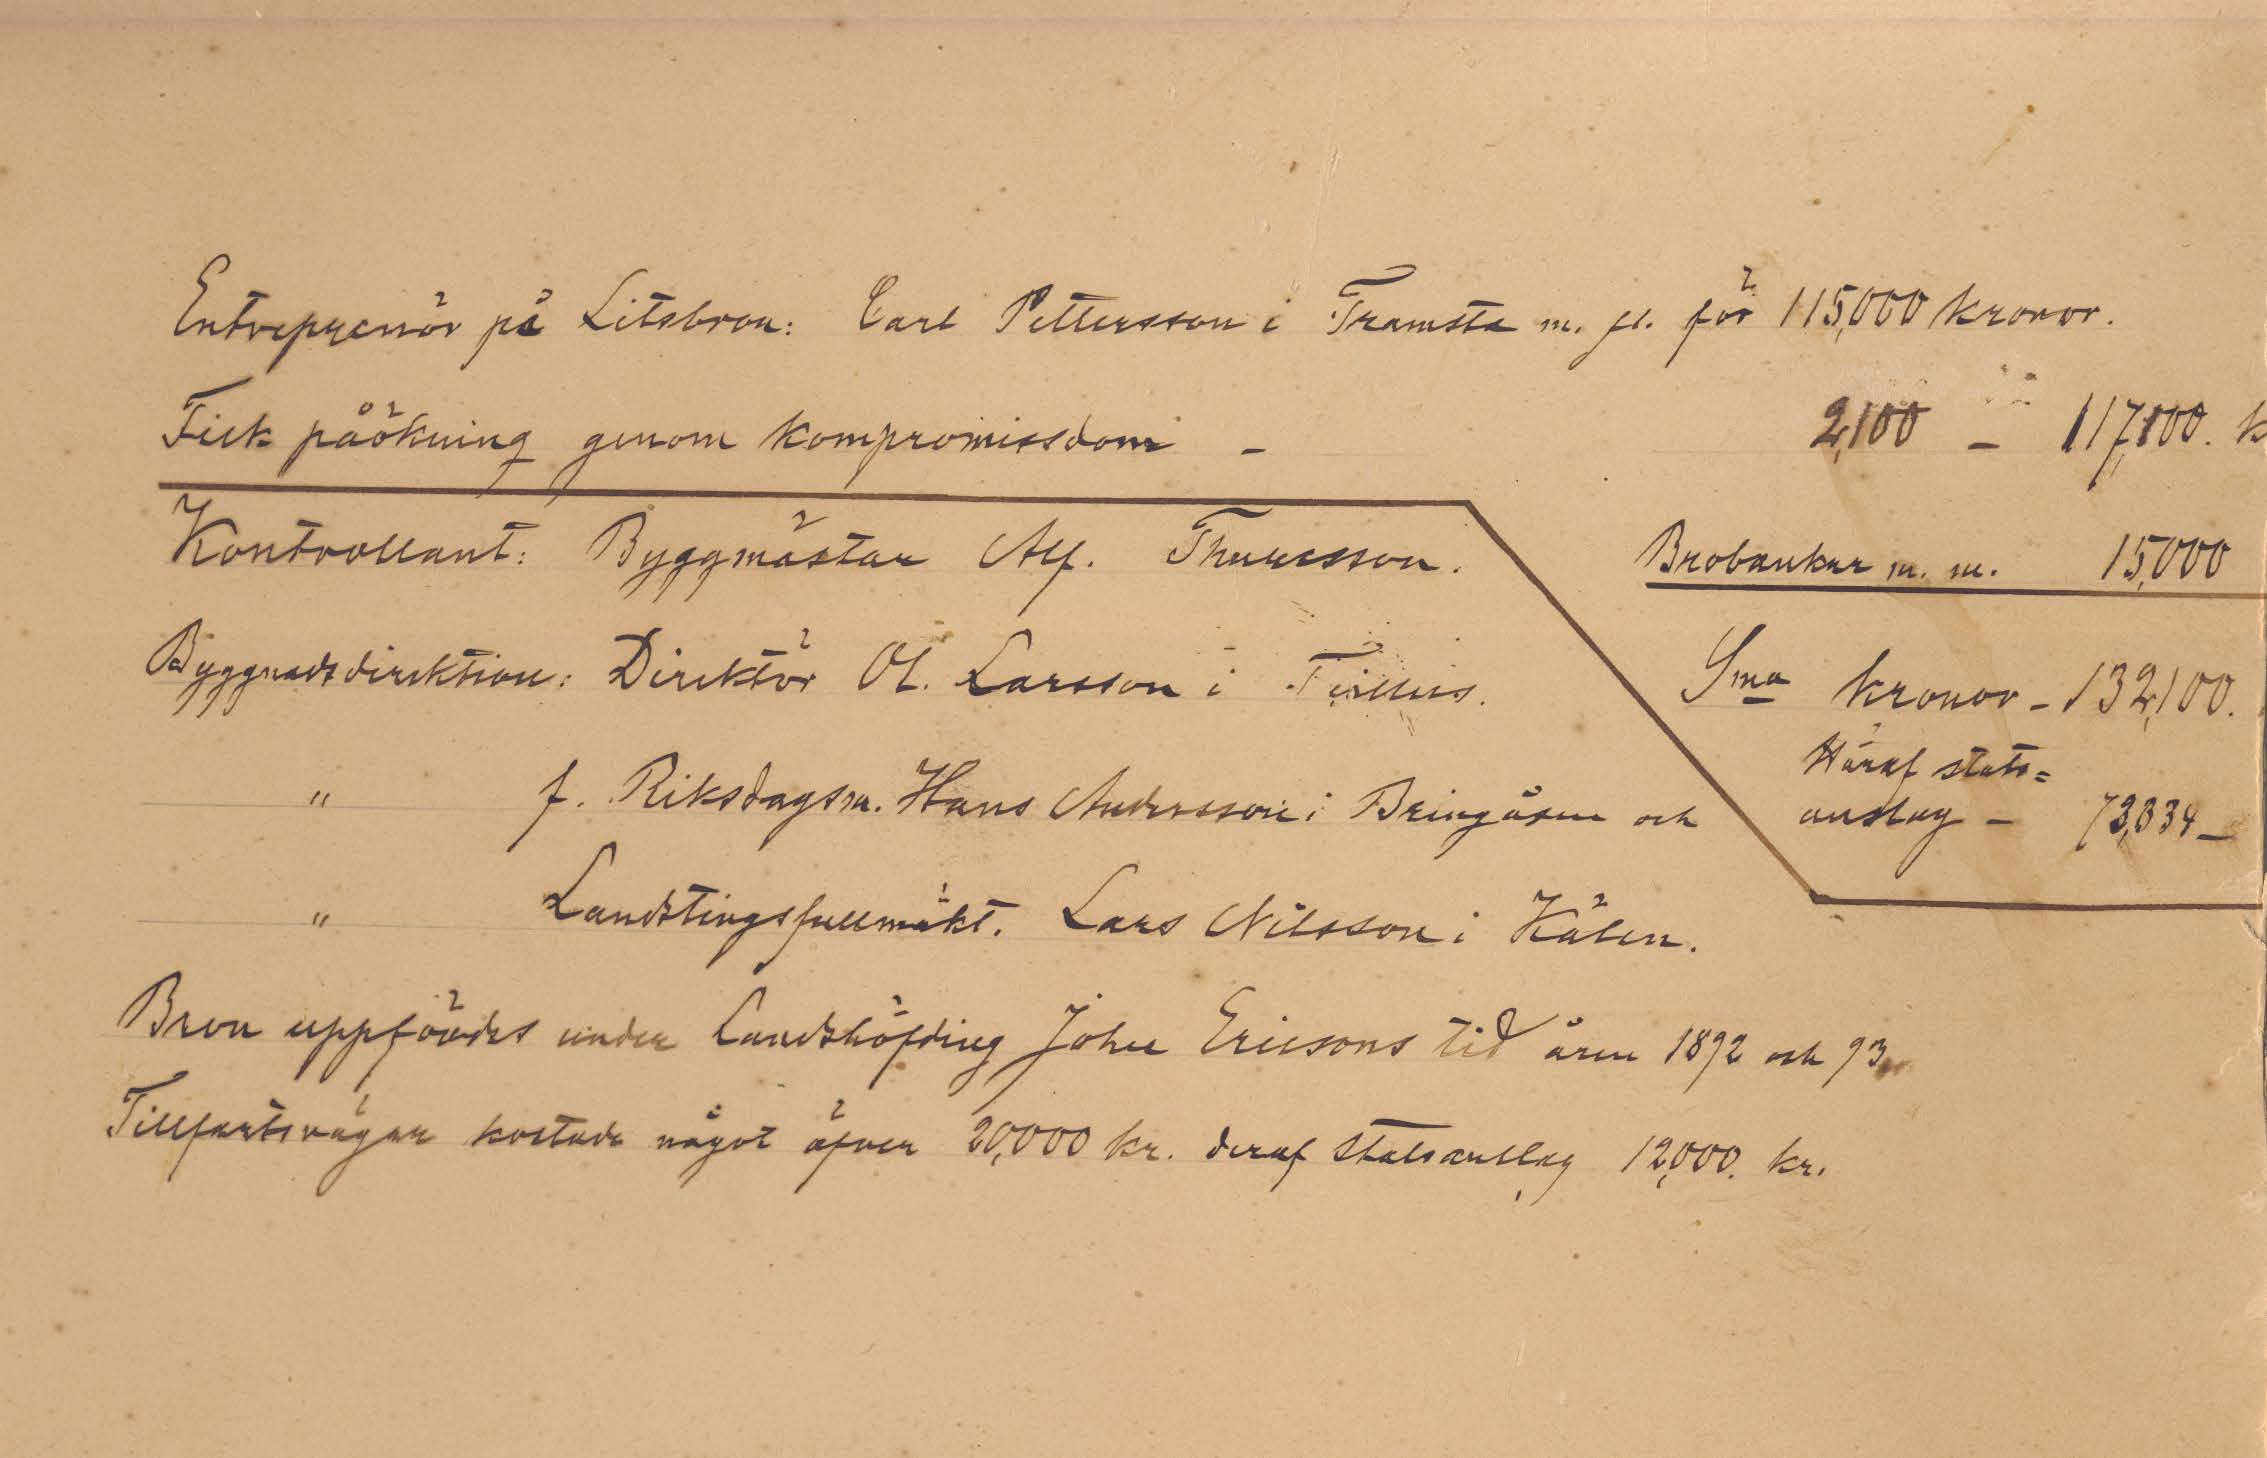 Entreprenör på Litsbron: Carl Pettersson i Framsta m. fl. för 115,000 kronor.
Fick påökning genom kompromissdom – 2,100 – 117,100. k
Kontrollant: Byggmästar Alf. Thuresson.
Brobankar m. m. 15,000
Byggnadsdirektion: Direktör Ol. Larsson i
Sma kronor – 132,100.
" f. Riksdagsm. Hans Andersson i Bringåsen och
Häraf stats=
anslag – 73,334 –
" Landstingsfullmäkt. Lars Nilsson i Kälen.
Bron uppfördes under Landshöfding John Ericsons tid åren 1892 och 93
Tillfartsvägar kostade något öfver 20,000 kr. deraf statsanslag 12,000. kr.